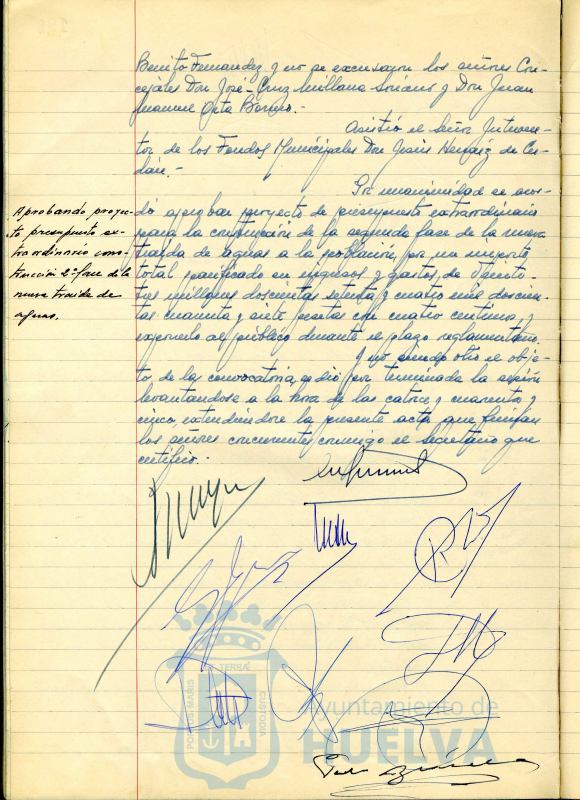 Benito Fernandez y no se excusaron los señores Con-
cejales Don José-Cruz Millana Soriano y Don Juan
Manuel Orta Borrero.-
Asistió el señor Interven-
tor de los Fondos Municipales Don Jesús Hermida de Cu-
dán.-
Por unanimidad se acor-
dó aprobar proyecto de presupuesto extraordinario
para la construcción de la segunda fase de la nueva
traida de aguas a la población, por un importe
total nivelado en ingresos y gastos, de veinti-
tres millones doscientas setenta y cuatro mil doscien-
tas y siete pesetas con cuatro centimos, y
exponerlo al público durante el plazo reglamentario.
Y no siendo otro el obje-
to de la convocatoria, se dió por terminada la sesión
levantandose a la hora de las catorce y cuarenta y
cinco, extendiendose la presente acta que firman
los señores concurrentes conmigo el secretario que
certifico.-
Aprobando proyec-
to presupuesto ex-
traordinario cons-
trucción 2ª fase de la
nueva traida de
aguas.
PORTUS MARIS
TERRAE
CUSTODIA
Ayuntamiento de
HUELVA